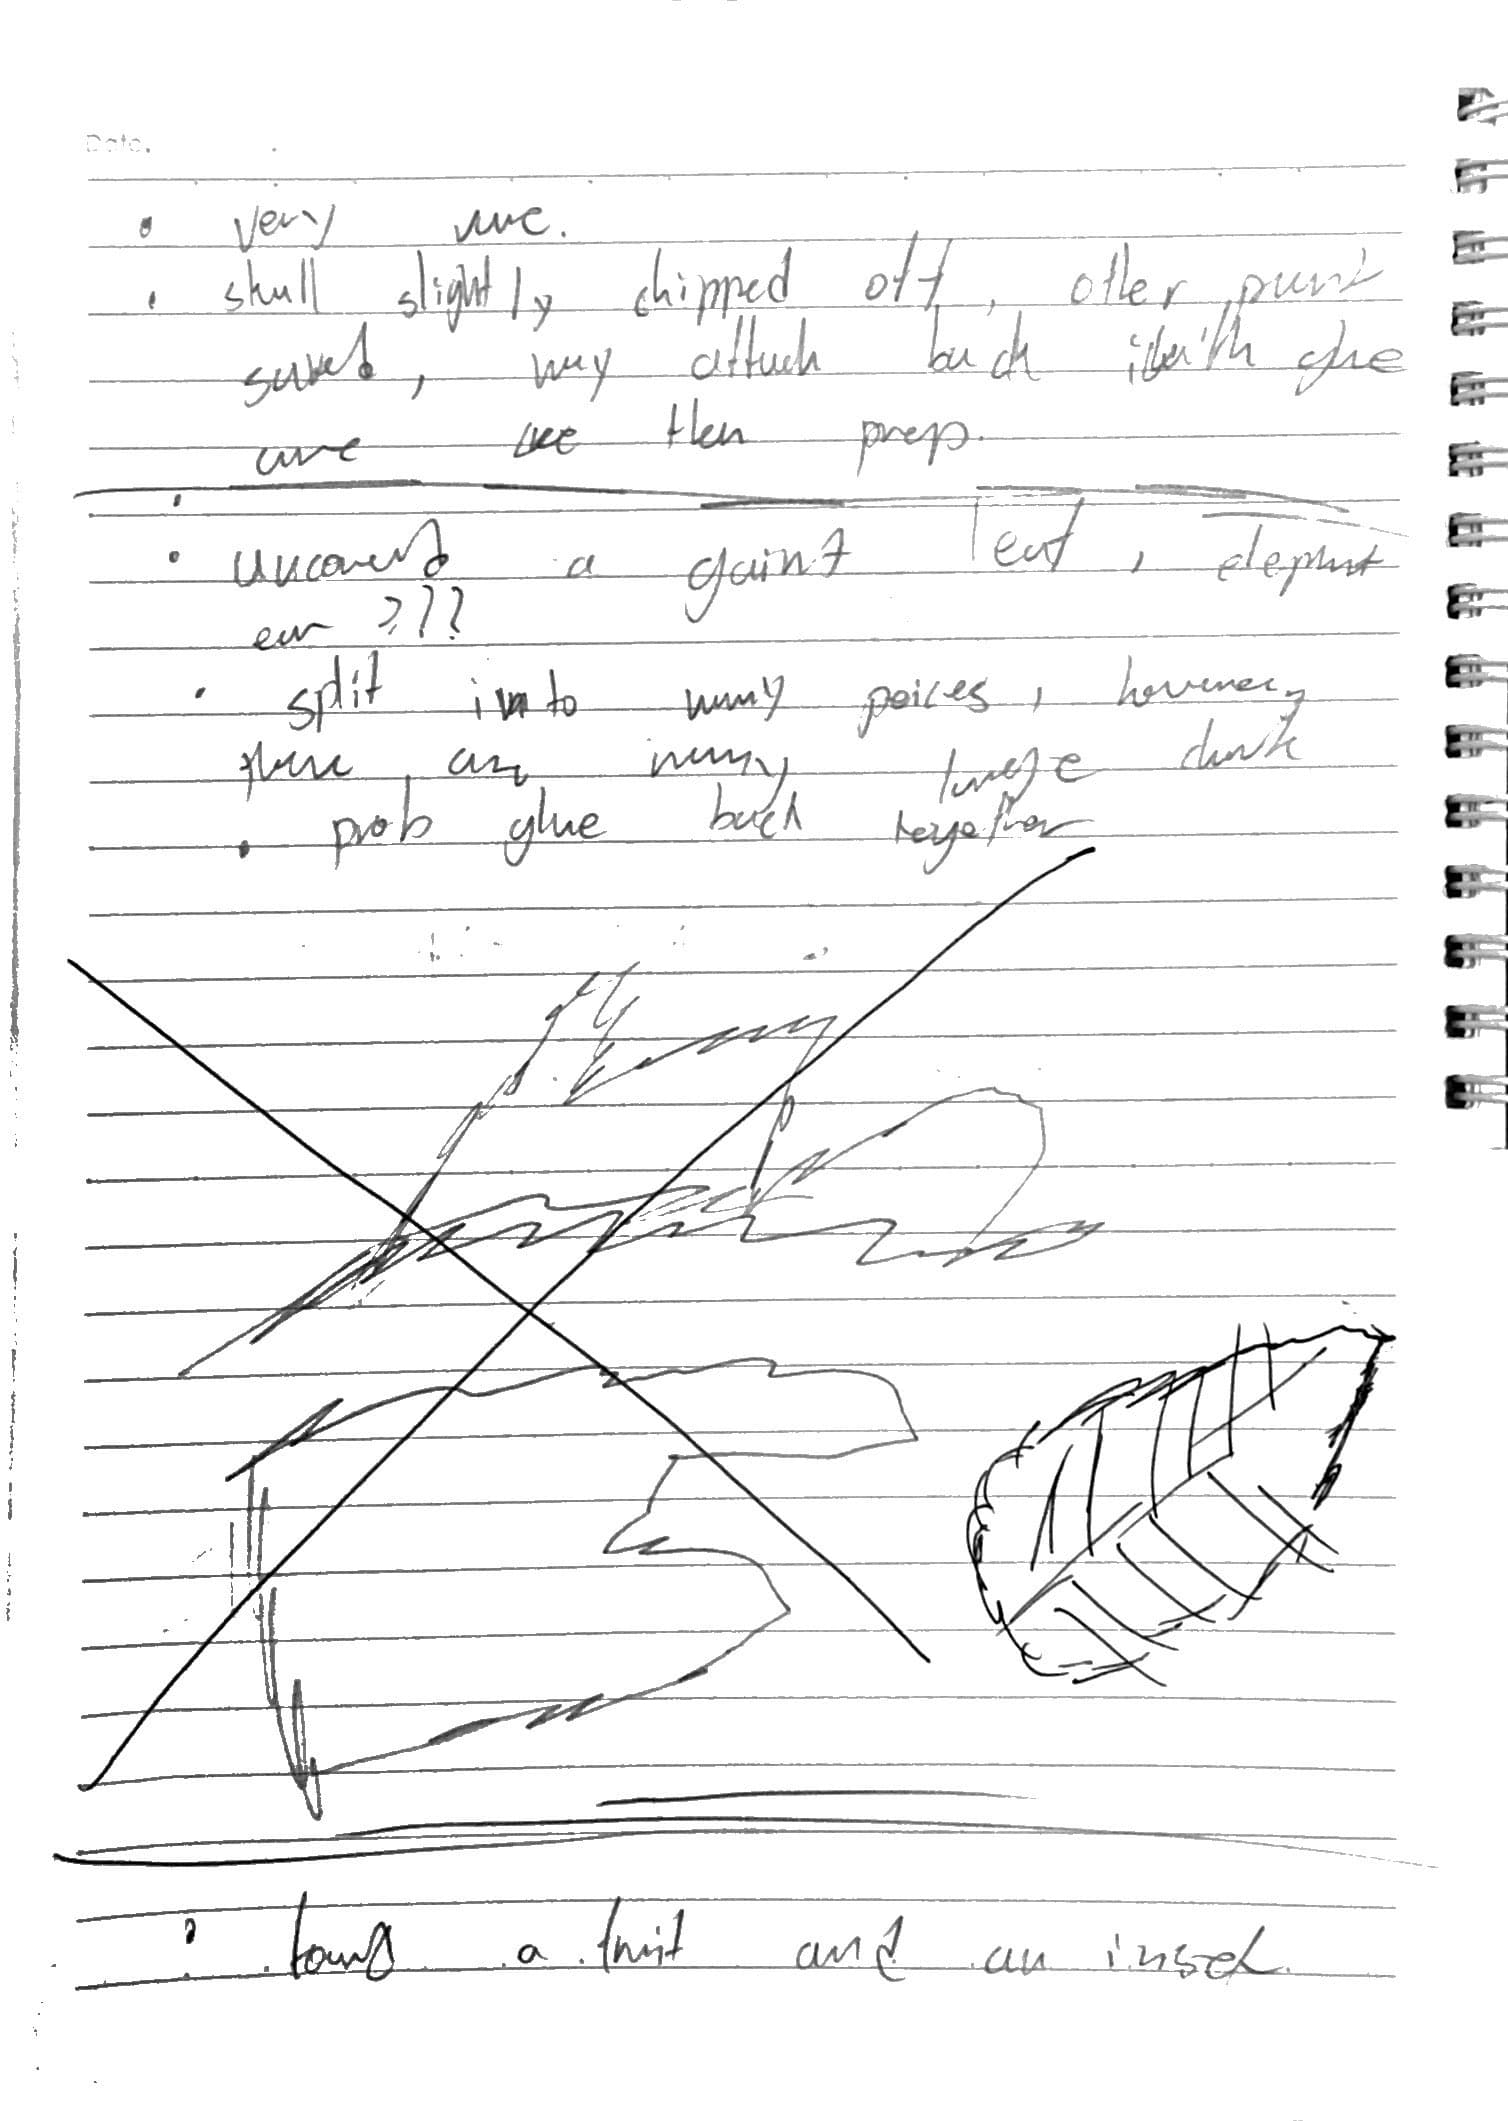 Date.
• very rare.
• skull slightly chipped off, other part
saved, may attach back with glue
then prep.
• uncoverd a gaint leaf, elephant
ear ???
• split into many peices, however,
there are many large chunk
• prob glue back together
• found a fruit and an insect.